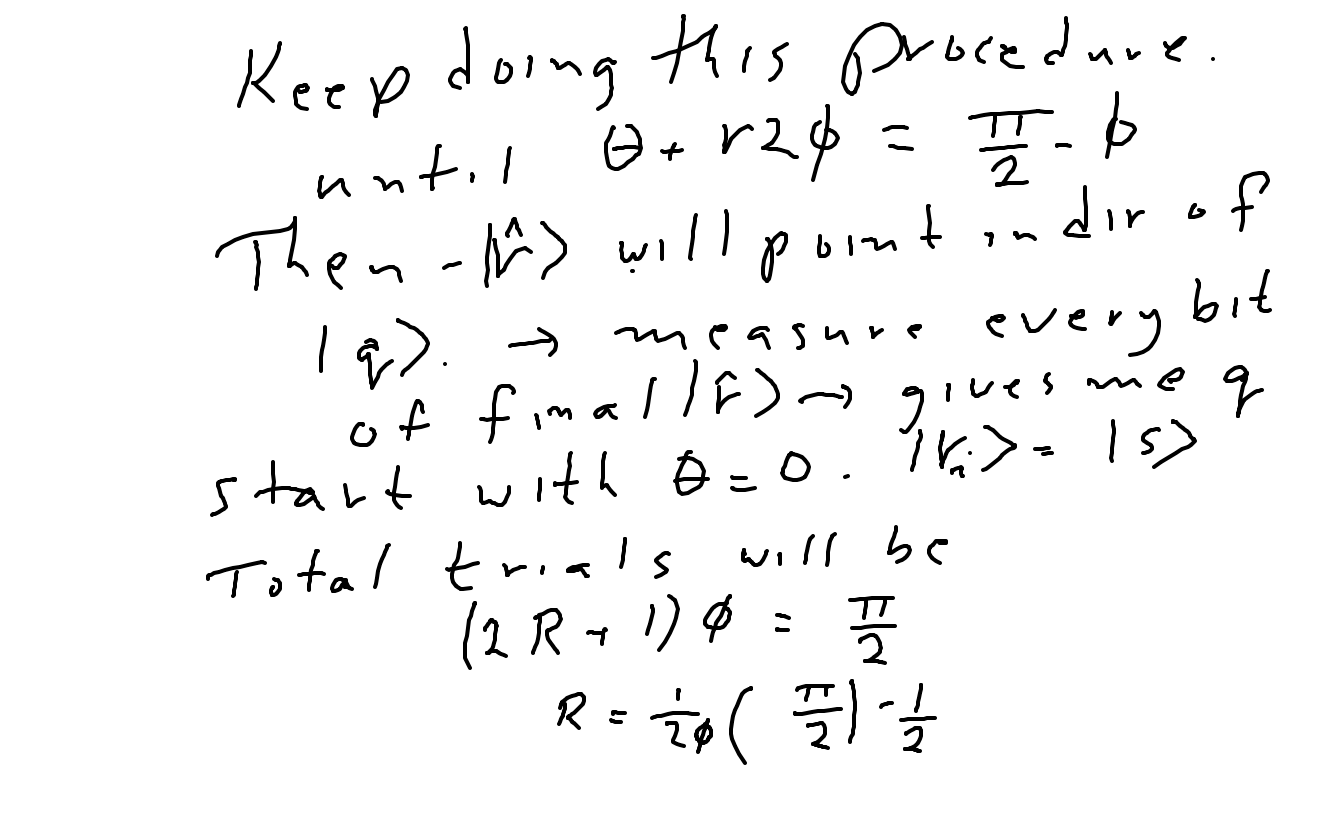 Keep doing this procedure.
until θ + r2ϕ = π/2 - ϕ
Then -|r̂> will point in dir of
|q̂>. → measure every bit
of final |r̂> → gives me q
start with θ = 0. |r_in> = |s>
Total trials will be
(2R + 1)ϕ = π/2
R = 1/2ϕ (π/2) - 1/2